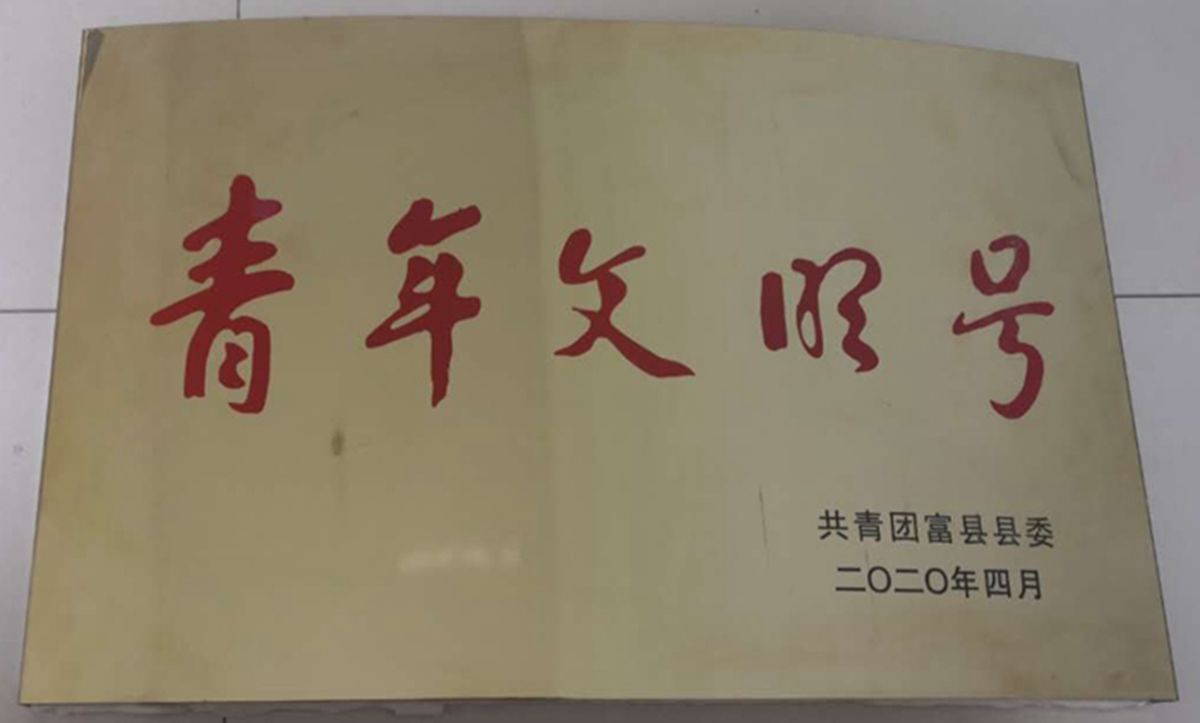 青年文明号
共青团富县县委
二〇二〇年四月